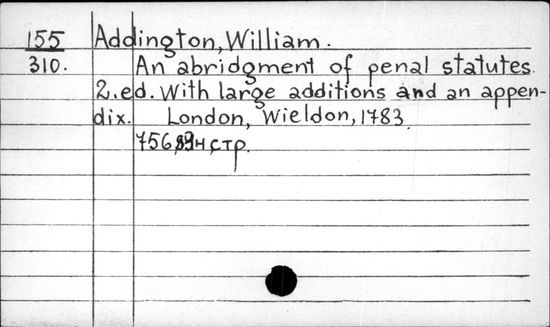 155 Addington, William.
310. An abridgment of penal statutes.
2.ed. With large additions and an appen-
dix. London, Wieldon, 1783.
756, стр.